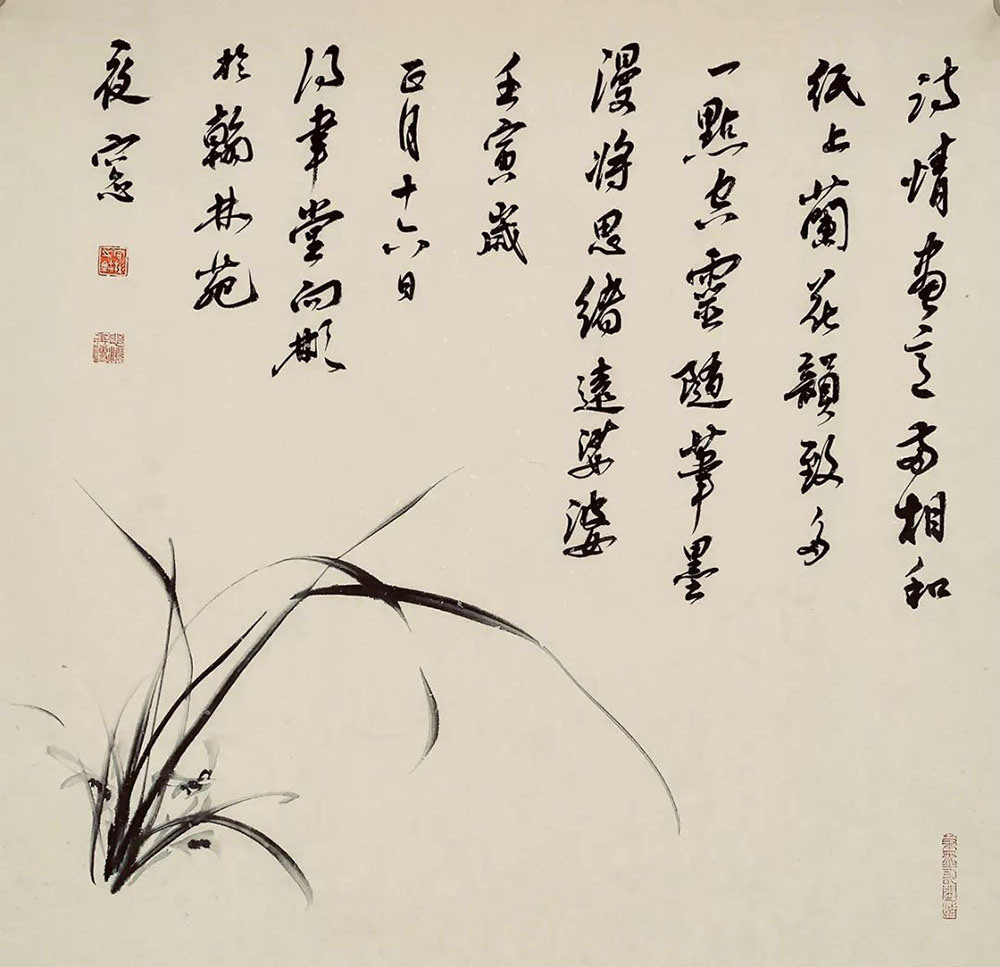 詩情畫意兩相和
紙上蘭花韻致多
一點空靈隨筆墨
漫将思緒遠娑婆
壬寅歲
正月十六日
得聿堂向彬
於翰林苑
夜窻